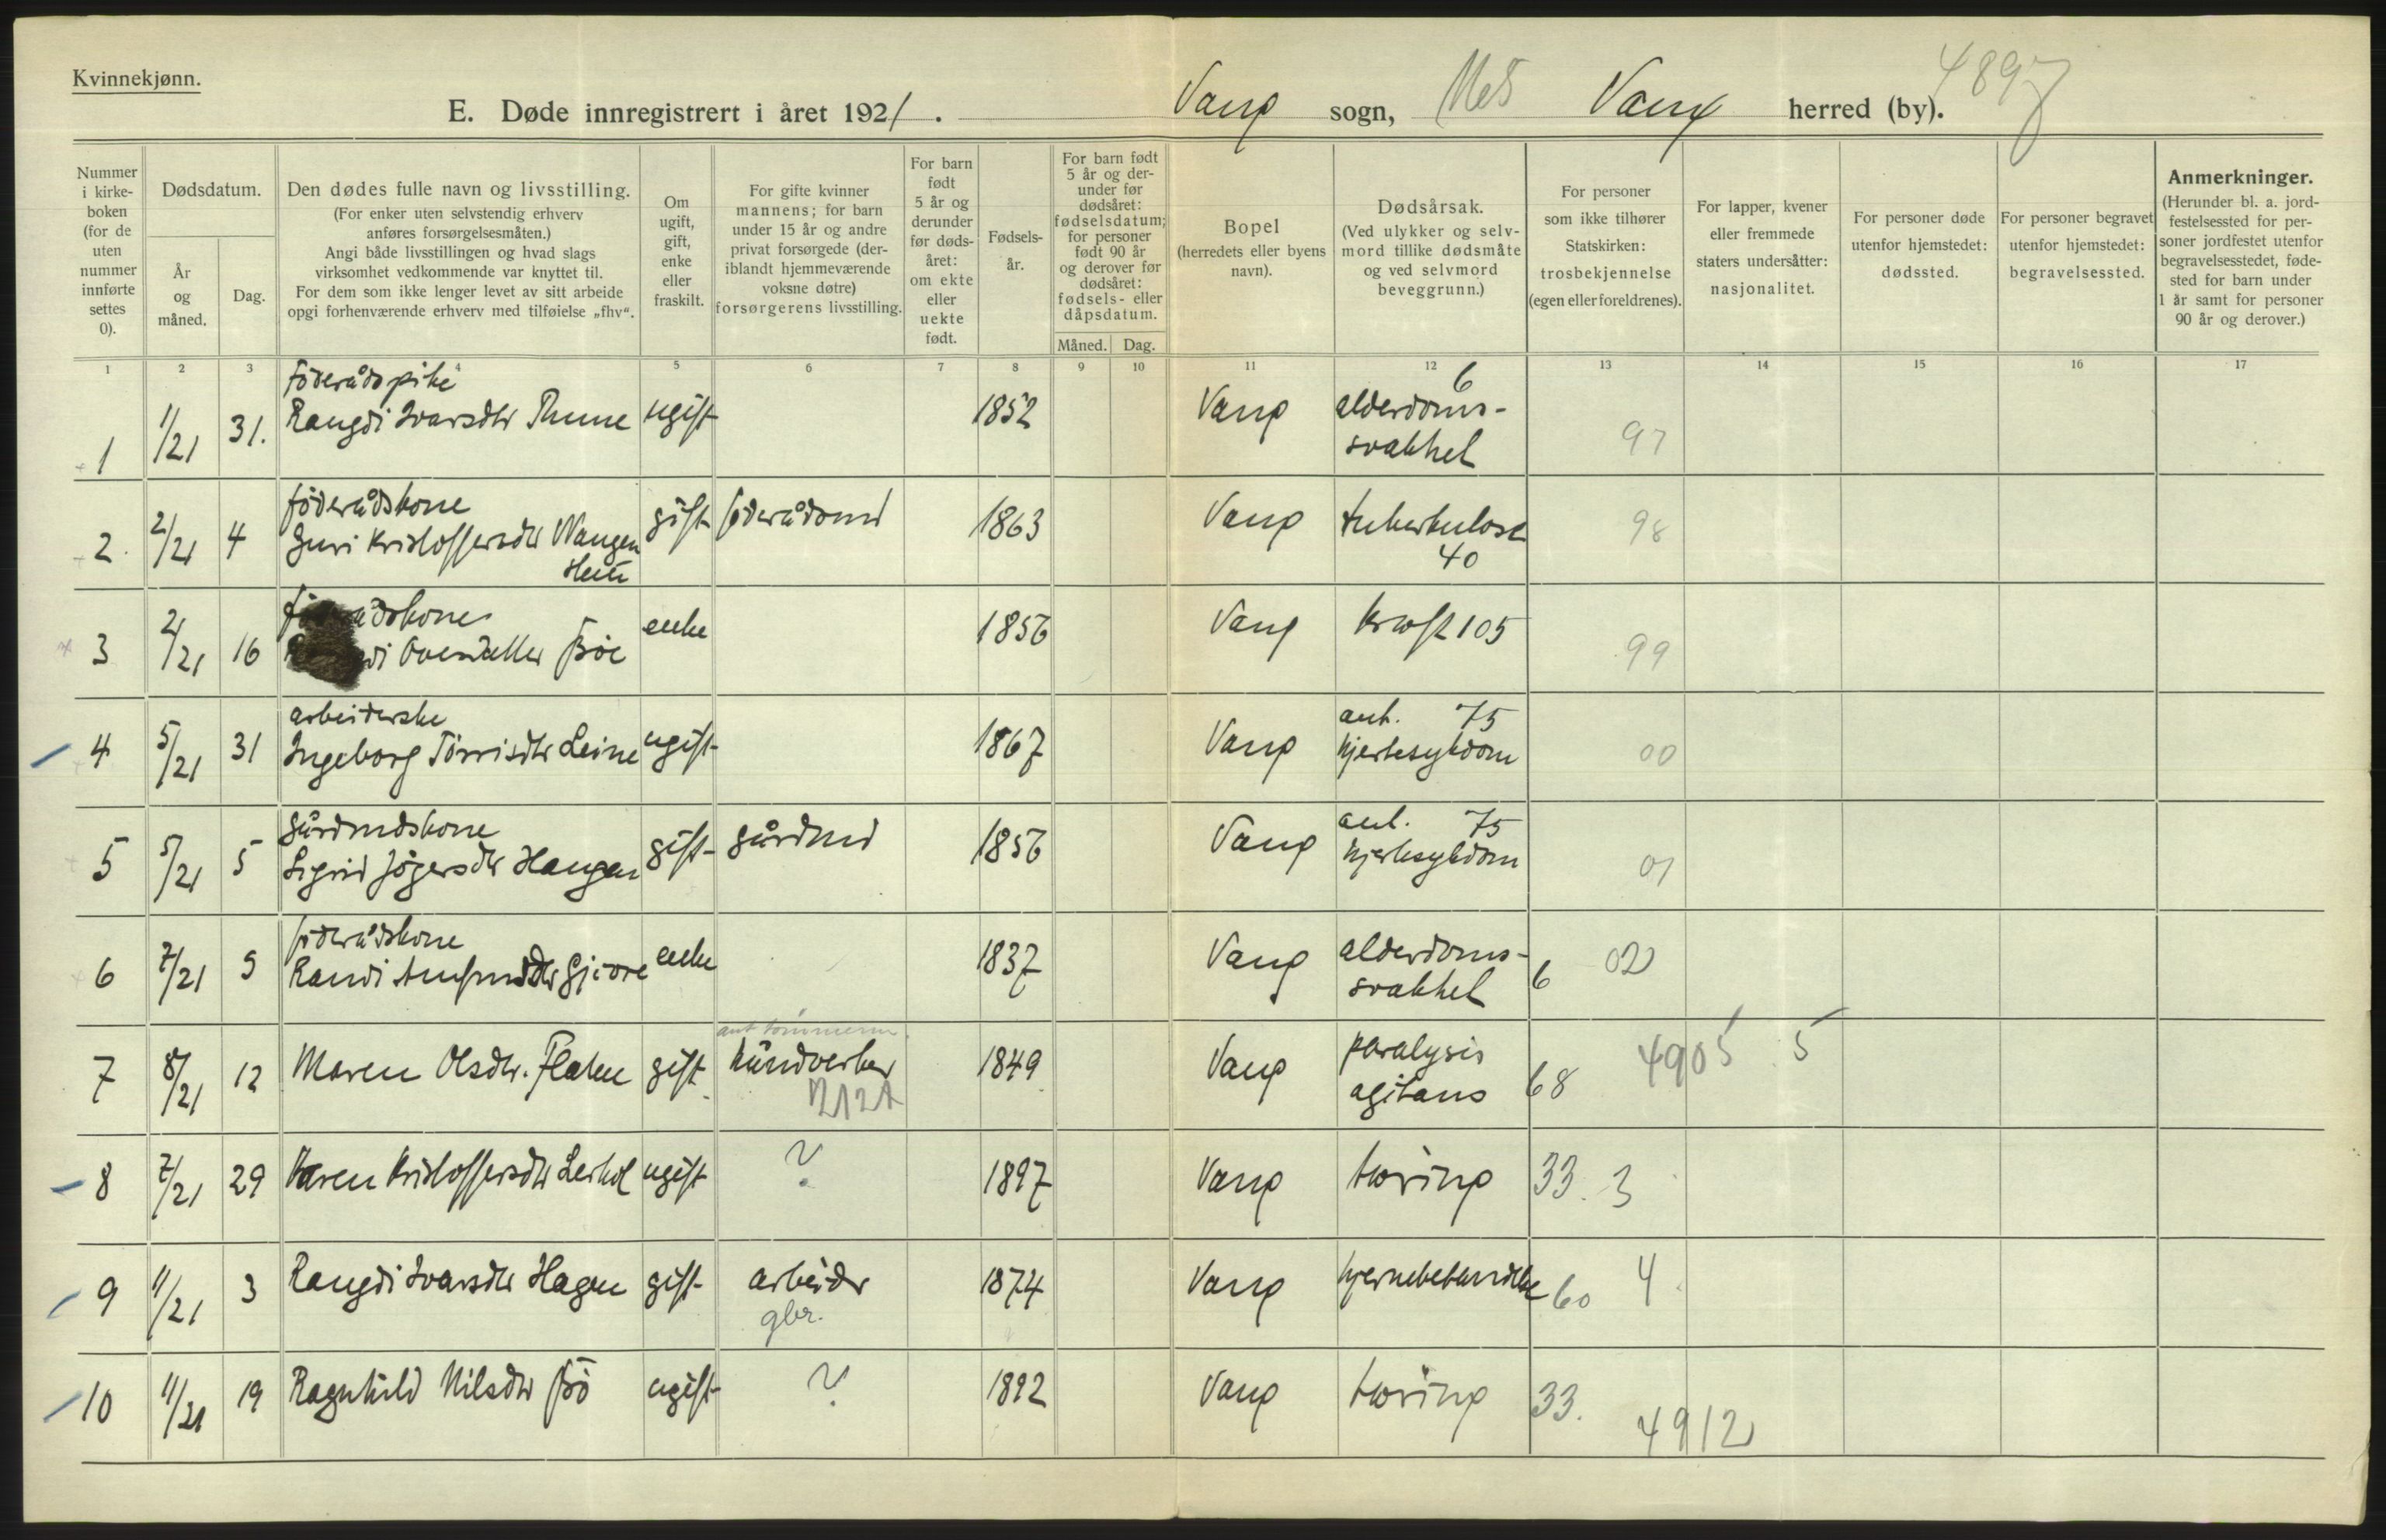 Kvinnekjønn.
4897
E. Døde innregistrert i året 1921. Vang sogn, Vang herred (by).
Nummer i kirkeboken (for de uten nummer innførte settes 0).
Dødsdatum.
År og måned.
Dag.
Den dødes fulle navn og livsstilling.
(For enker uten selvstendig erhverv anføres forsørgelsesmåten.)
Angi både livsstillingen og hvad slags virksomhet vedkommende var knyttet til.
For dem som ikke lenger levet av sitt arbeide opgi forhenværende erhverv med tilføielse „fhv“.
Om ugift, gift, enke eller fraskilt.
For gifte kvinner mannens; for barn under 15 år og andre privat forsørgede (deriblandt hjemmeværende voksne døtre) forsørgerens livsstilling.
For barn født 5 år og derunder før dødsåret: om ekte eller uekte født.
Fødselsår.
For barn født 5 år og derunder før dødsåret: fødselsdatum; for personer født 90 år og derover før dødsåret: fødsels- eller dåpsdatum.
Måned. Dag.
Bopel (herredets eller byens navn).
Dødsårsak.
(Ved ulykker og selvmord tillike dødsmåte og ved selvmord beveggrunn.)
For personer som ikke tilhører Statskirken: trosbekjennelse (egen eller foreldrenes).
For lapper, kvener eller fremmede staters undersåtter: nasjonalitet.
For personer døde utenfor hjemstedet: dødssted.
For personer begravet utenfor hjemstedet: begravelsessted.
Anmerkninger.
(Herunder bl. a. jordfestelsessted for personer jordfestet utenfor begravelsesstedet, fødested for barn under 1 år samt for personer 90 år og derover.)
1 2 3 4 5 6 7 8 9 10 11 12 13 14 15 16 17
føderådspike 6
1 1/21 31. Rangdi Ivarsdtr Thune ugift 1852 Vang alderdoms-
svakhet 97
føderådskone
2 2/21 4 Guri Kristoffersdtr Wangen gift føderådsmd 1863 Vang tuberkulose 98
40
3 2/21 16 enke 1856 Vang kreft 105 99
Bøe
arbeiderske ant. 75
4 5/21 31 Ingeborg Tørrisdtr Leine ugift 1867 Vang hjertesykdom 00
gårdmdskone ant. 75
5 5/21 5 Sigrid Jøgersdtr Haugen gift gårdmd 1856 Vang hjertesykdom 01
føderådskone
6 7/21 9 Randi enke 1837 Vang alderdoms-
svakhet 6 02
7 8/21 12 Maren Olsdtr. Flaten gift håndverker 1849 Vang paralysis
agitans 68 4905 5
8 7/21 29 Karen Kristoffersdtr Leirhol ugift ? 1897 Vang tæring 33. 3
9 11/21 3 Rangdi Ivarsdtr Hagen gift arbeider 1874 Vang hjernebetendelse 60 4
gbr.
10 11/21 19 Ragnhild Nilsdtr Bø ugift ? 1892 Vang tæring 33.
4912